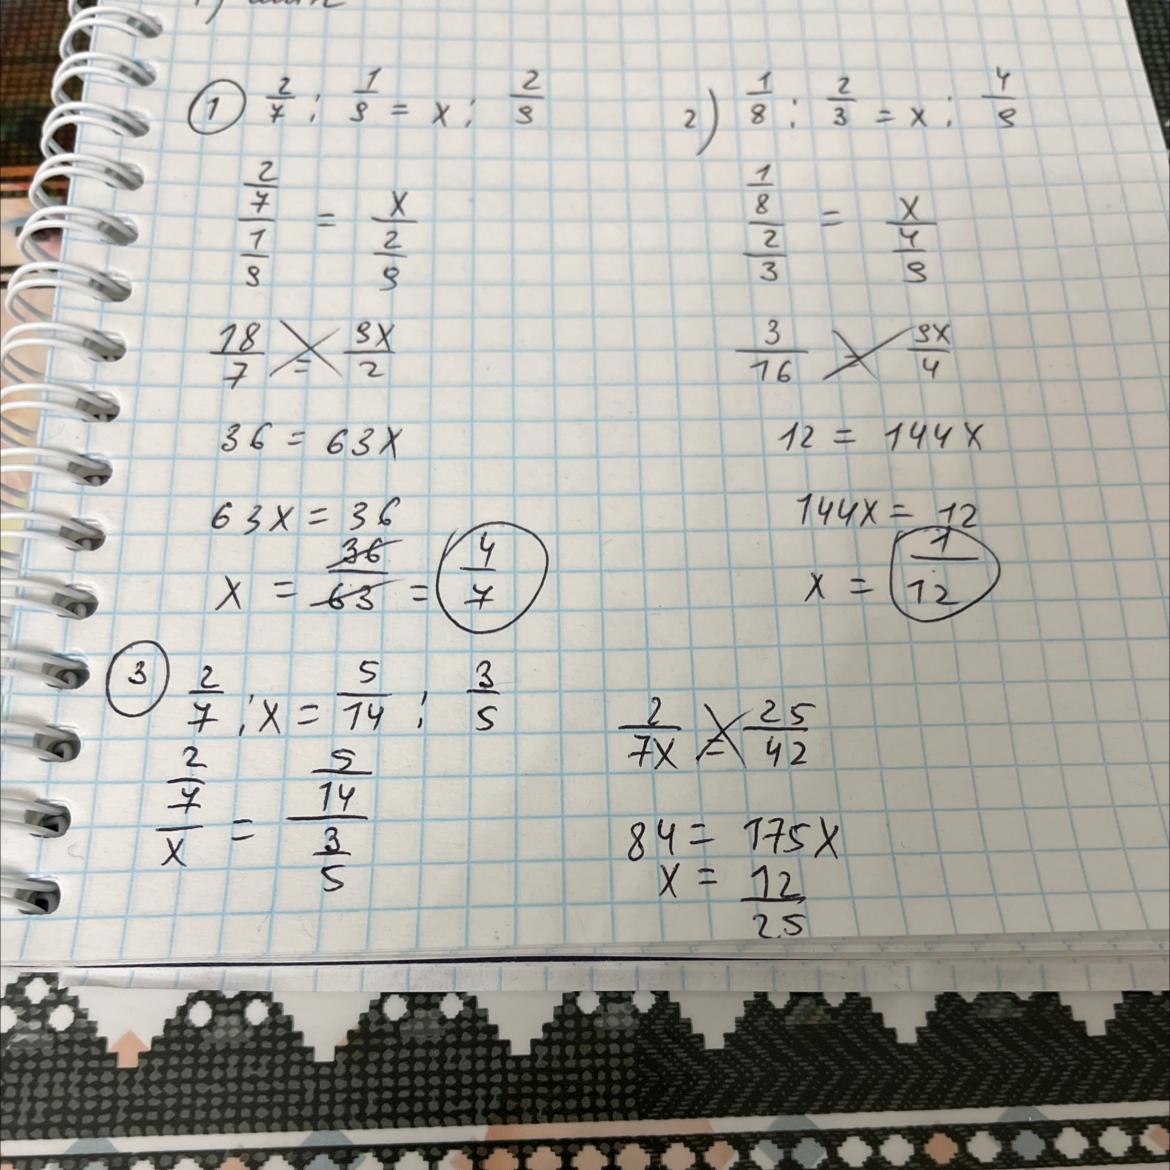 ① 2/7 : 1/9 = x : 2/9
2/7 / 1/9 = x / 2/9
18/7 = 9x/2
36 = 63x
63x = 36
x = 36/63 = 4/7
2) 1/8 : 2/3 = x : 4/9
1/8 / 2/3 = x / 4/9
3/16 = 9x/4
12 = 144x
144x = 12
x = 1/12
③ 2/7 : x = 5/14 : 3/5
2/7 / x = 5/14 / 3/5
2/7x = 25/42
84 = 175x
x = 12/25